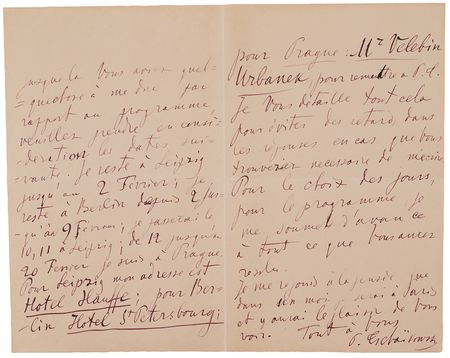 jusque là Vous avez quel-
=quechose à me dire par
rapport au programme,
veuillez prendre en consi-
=deration les dates, sui-
vante. Je reste à Leipzig
jusqu'au 2 Février; Je
reste à Berlin depuis 2 jus-
qu'au 9 Février; je passerai le
10, 11 à Leipzig; de 12 jusqu'au
20 Fevrier je suis à Prague.
Pour Leipzig mon adresse est
Hotel Hauffe; pour Ber-
lin Hotel St Petersbourg;
pour Prague: Mr Velebin
Urbanek, pour remettre à P. T.
Je Vous détaille tout cela
pour éviter des retard dans
les réponses en cas que Vous
trouveriez necessaire de m'écrire.
Pour le choix des jours,
pour le programme je
me soumet d'avance
à tout ce que Vous aurez
resolu.
Je me rejouis à la pensée que
dans un mois serai à Paris
et y aurai le plaisir de Vous
voir. Tout à Vous
P. Tschaïkovsky